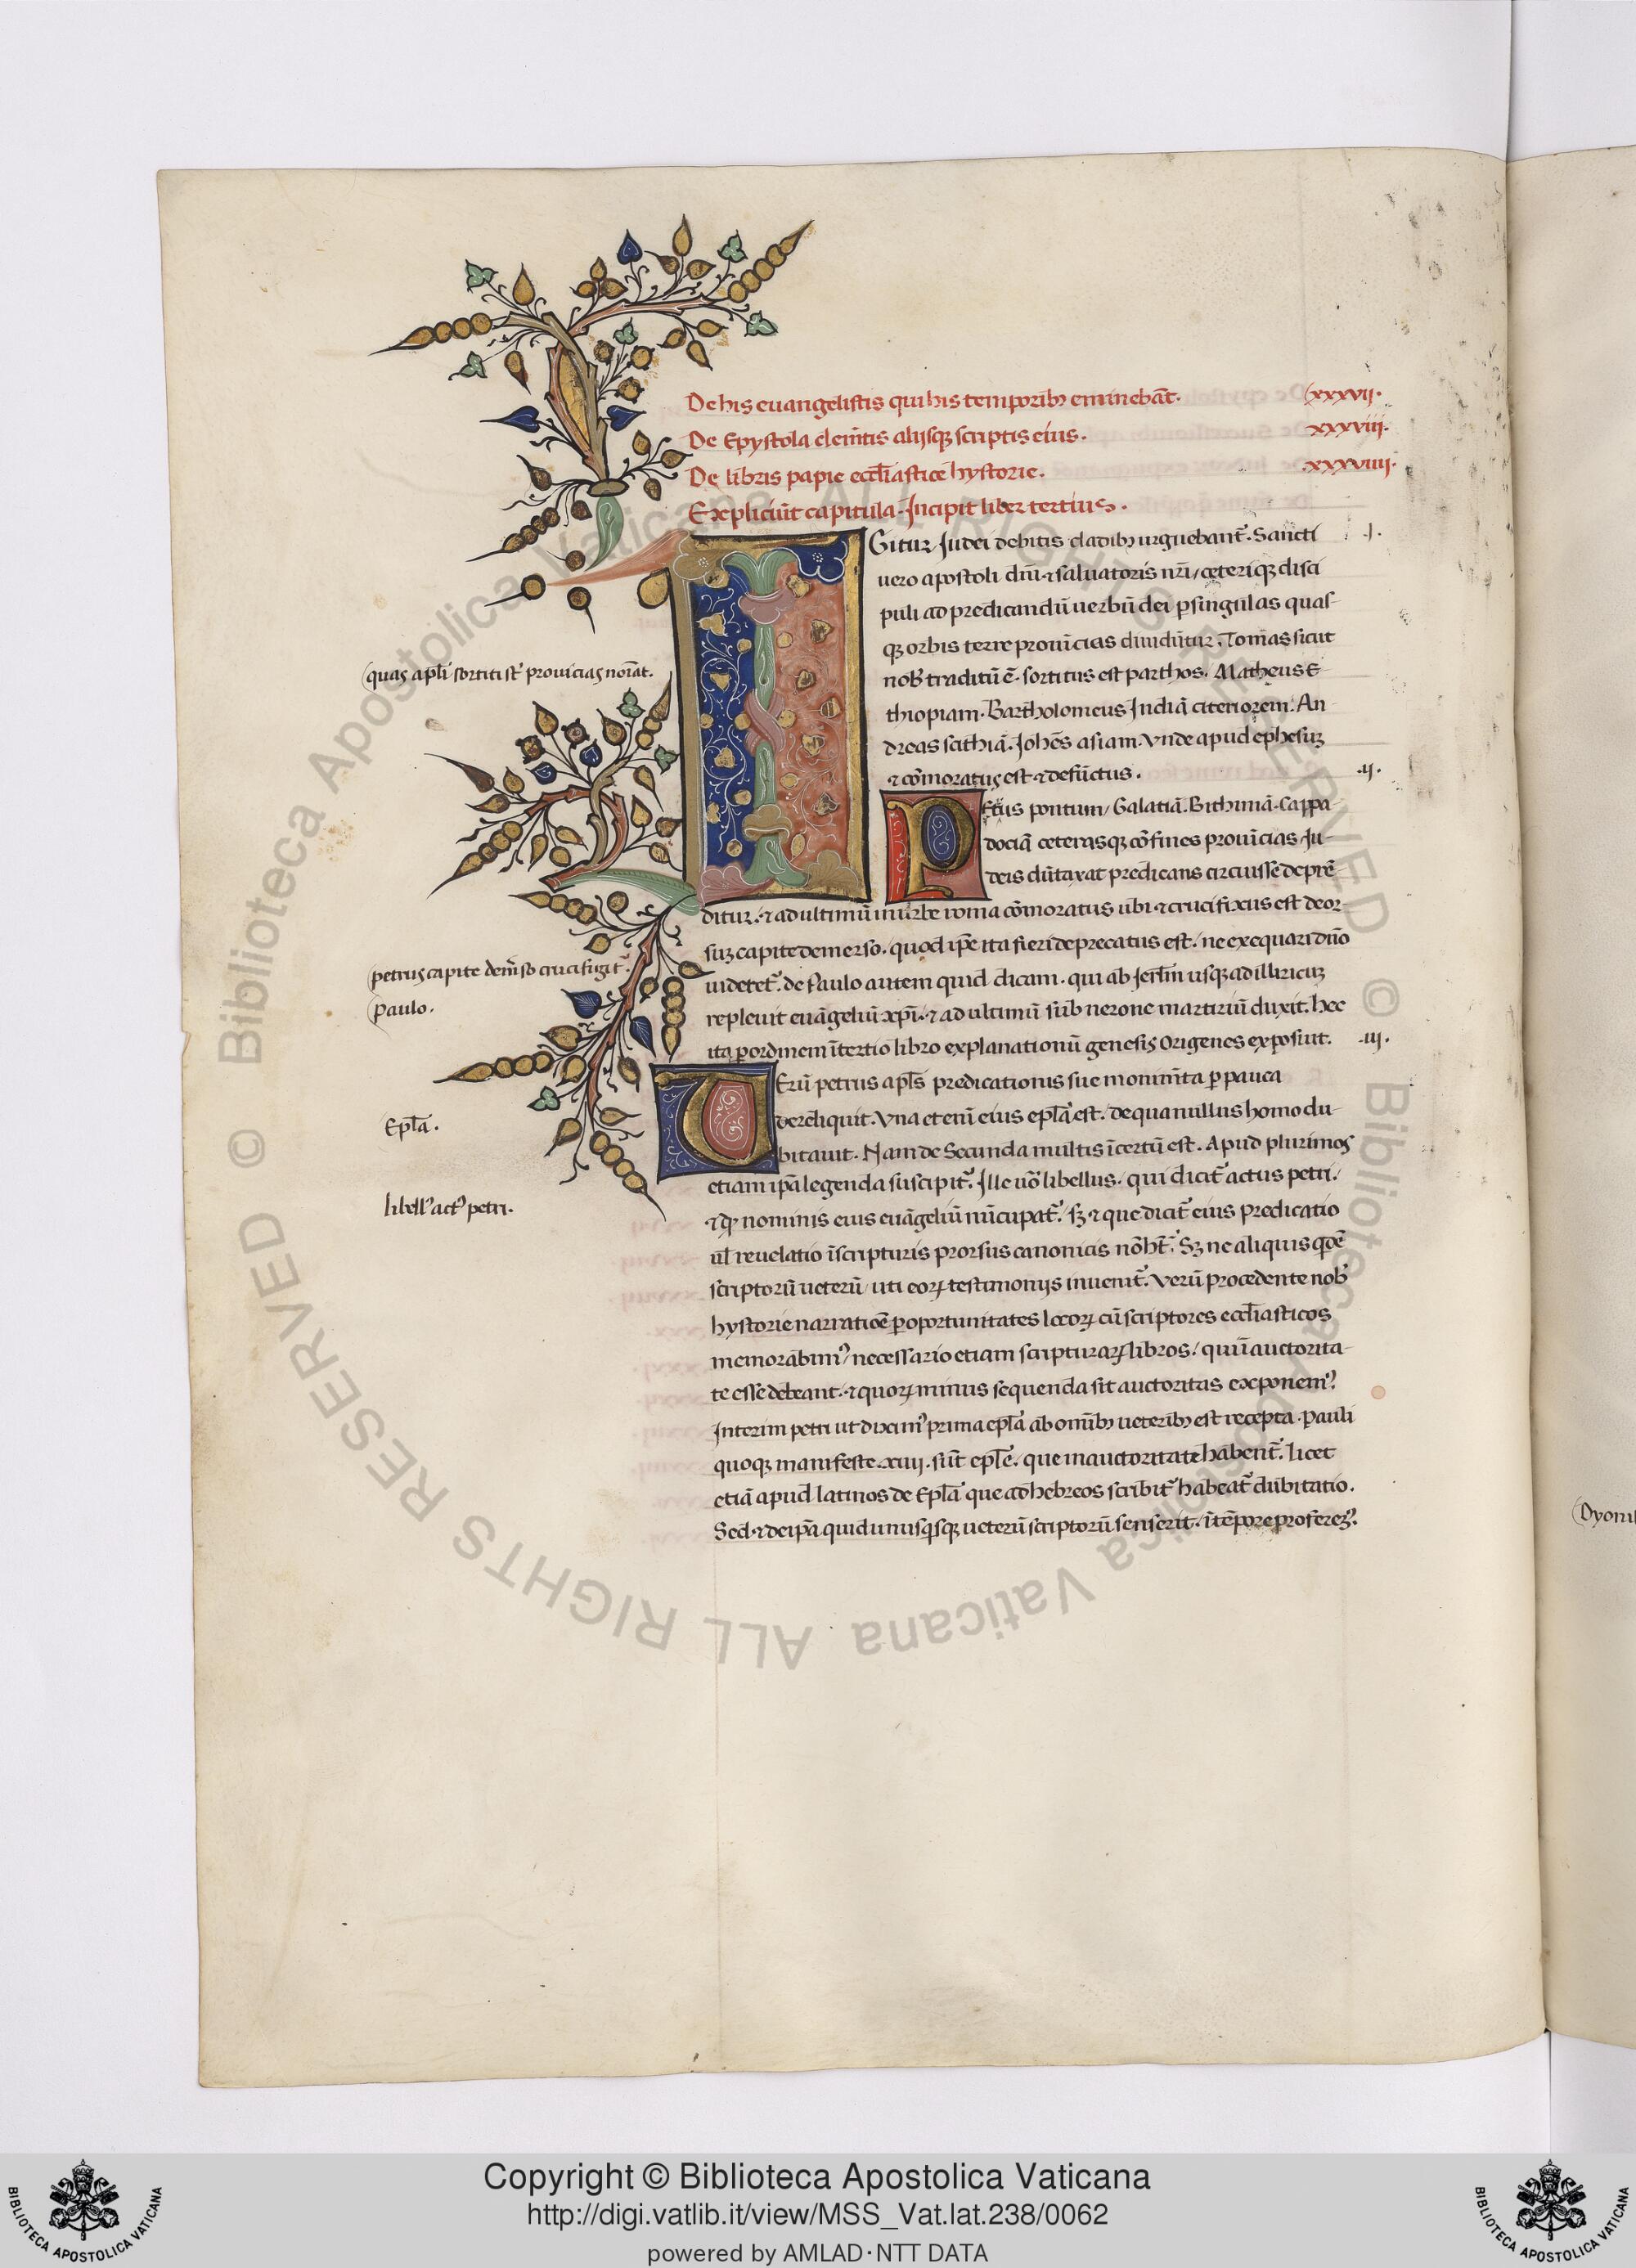 De his euangelistis qui his temporibꝫ eminebāt. xxxvij.
De Epystola clemētis alijsqꝫ scriptis eius. xxxviij.
De libris papie eccl̄iastice hystorie. xxxviiij.
Expliciūt capitula. Incipit liber tertius.
IGitur Iudei debitis cladibꝫ urguebant᷑. Sancti .I.
uero apostoli dn̄i ⁊ saluatoris nr̄i / ceteriqꝫ disci
puli ad predicandū uerbū dei ꝑ singulas quas-
qꝫ orbis terre prouīcias diuidūtur. Tomas sicut
nob̄ traditū ē. sortitus est parthos. Matheus E
thiopiam. Bartholomeus Indiā citeriorem. An
dreas scithiā. Iohēs asiam. Vnde apud ephesuꝫ
⁊ cōmoratus est ⁊ defūctus. .ij.
quas apl̄i sortiti st̄ prouīcias norāt.
PEtrus pontum / Galatiā. Bithiniā. Cappa
dociā ceterasqꝫ cōfines prouīcias / Iu-
deis dūtaxat predicans circuisse deprē-
ditur. ⁊ ad ultimū in urbe roma cōmoratus ubi ⁊ crucifixus est deor-
suꝫ capite demerso. quod ip̄e ita fieri deprecatus est. ne exequari dn̄o
petrus capite dem̄so crucifigit᷑.
uidetet᷑. de Paulo autem quid dicam. qui ab Ierl̄m usqꝫ ad illiricuꝫ
paulo.
repleuit euāgeliū xp̄i. ⁊ ad ultimū sub nerone martiriū duxit. hec
ita ꝑ ordinem ī tertio libro explanationū genesis Origenes exposuit. .iij.
VErū petrus apl̄s predicationis sue monimīta ꝑ pauca
dereliquit. Vna etenī eius epl̄a est. de qua nullus homo du-
Epl̄a.
bitauit. Nam de Secunda multis īcertū est. Apud plurimos
etiam ip̄a legenda suscipit᷑. Ille uo᷒ libellus. qui dicit᷑ actus petri.
libell᷒ act᷒ petri.
⁊ qd̄ nominis eius euāgeliū nūcupat᷑. sꝫ ⁊ que dicit᷑ eius predicatio
ul̄ reuelatio ī scripturis prorsus canonicis nō ht̄. Sꝫ ne aliquis qdē
scriptorū ueterū / uti eoꝝ testimonijs inuenit᷑. Verū procedente nob̄
hystorie narratiōe ꝑ oportunitates locoꝝ cū scriptores eccl̄iasticos
memorabim᷒ / necessario etiam scripturaꝝ libros / qui ī auctorita-
te esse debeant. ⁊ quoꝝ minus sequenda sit auctoritas exponem᷒.
Interim petri ut dixim᷒ prima epl̄a ab omībꝫ ueteribꝫ est recepta. Pauli
quoqꝫ manifeste .xiiij. sūt epl̄e. que in auctoritate habent᷑. Licet
etiā apud latinos de Epl̄a que ad hebreos scribit᷑ habeat᷑ dubitatio.
Sed ⁊ de ip̄a quid unusqsqꝫ ueterū scriptorū senserit. ī tēpore proferem᷒.
Copyright © Biblioteca Apostolica Vaticana
http://digi.vatlib.it/view/MSS_Vat.lat.238/0062
powered by AMLAD·NTT DATA
BIBLIOTECA APOSTOLICA VATICANA
BIBLIOTECA APOSTOLICA VATICANA
© Biblioteca Apostolica Vaticana ALL RIGHTS RESERVED
© Biblioteca Apostolica Vaticana ALL RIGHTS RESERVED